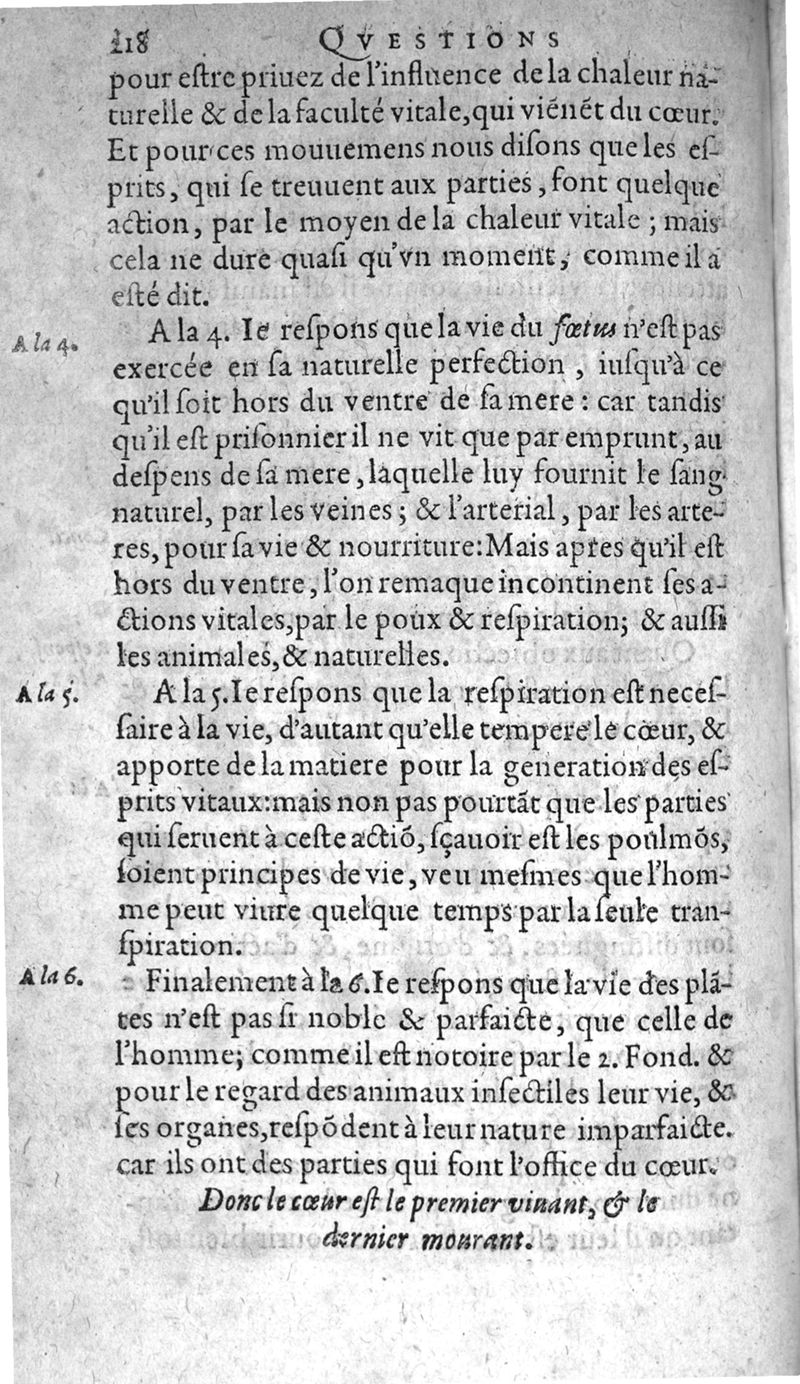 118 QVESTIONS
pour eſtre priuez de l'influence de la chaleur na-
turelle & de la faculté vitale, qui viẽnẽt du cœur.
Et pour ces mouuemens nous diſons que les eſ-
prits, qui ſe treuuent aux parties, font quelque
action, par le moyen de la chaleur vitale ; mais
cela ne dure quaſi qu'vn moment, comme il a
eſté dit.
A la 4.
A la 4. Ie reſpons que la vie du fœtus n'eſt pas
exercée en ſa naturelle perfection , iuſqu'à ce
qu'il ſoit hors du ventre de ſa mere : car tandis
qu'il eſt priſonnier il ne vit que par emprunt, au
deſpens de ſa mere, laquelle luy fournit le ſang
naturel, par les veines ; & l'arterial, par les arte-
res, pour ſa vie & nourriture: Mais apres qu'il eſt
hors du ventre, l'on remaque incontinent ſes a-
ctions vitales, par le poux & reſpiration; & auſſi
les animales, & naturelles.
A la 5.
A la 5. Ie reſpons que la reſpiration eſt neceſ-
ſaire à la vie, d'autant qu'elle tempere le cœur, &
apporte de la matiere pour la generation des eſ-
prits vitaux: mais non pas pourtãt que les parties
qui ſeruent à ceſte actiõ, ſçauoir eſt les poulmõs,
ſoient principes de vie, veu meſmes que l'hom-
me peut viure quelque temps par la ſeule tran-
ſpiration.
A la 6.
Finalement à la 6. Ie reſpons que la vie des plã-
tes n'eſt pas ſi noble & parfaicte, que celle de
l'homme; comme il eſt notoire par le 2. Fond. &
pour le regard des animaux inſectiles leur vie, &
ſes organes, reſpõdent à leur nature imparfaicte.
car ils ont des parties qui font l'office du cœur.
Donc le cœur eſt le premier viuant, & le
dernier mourant.